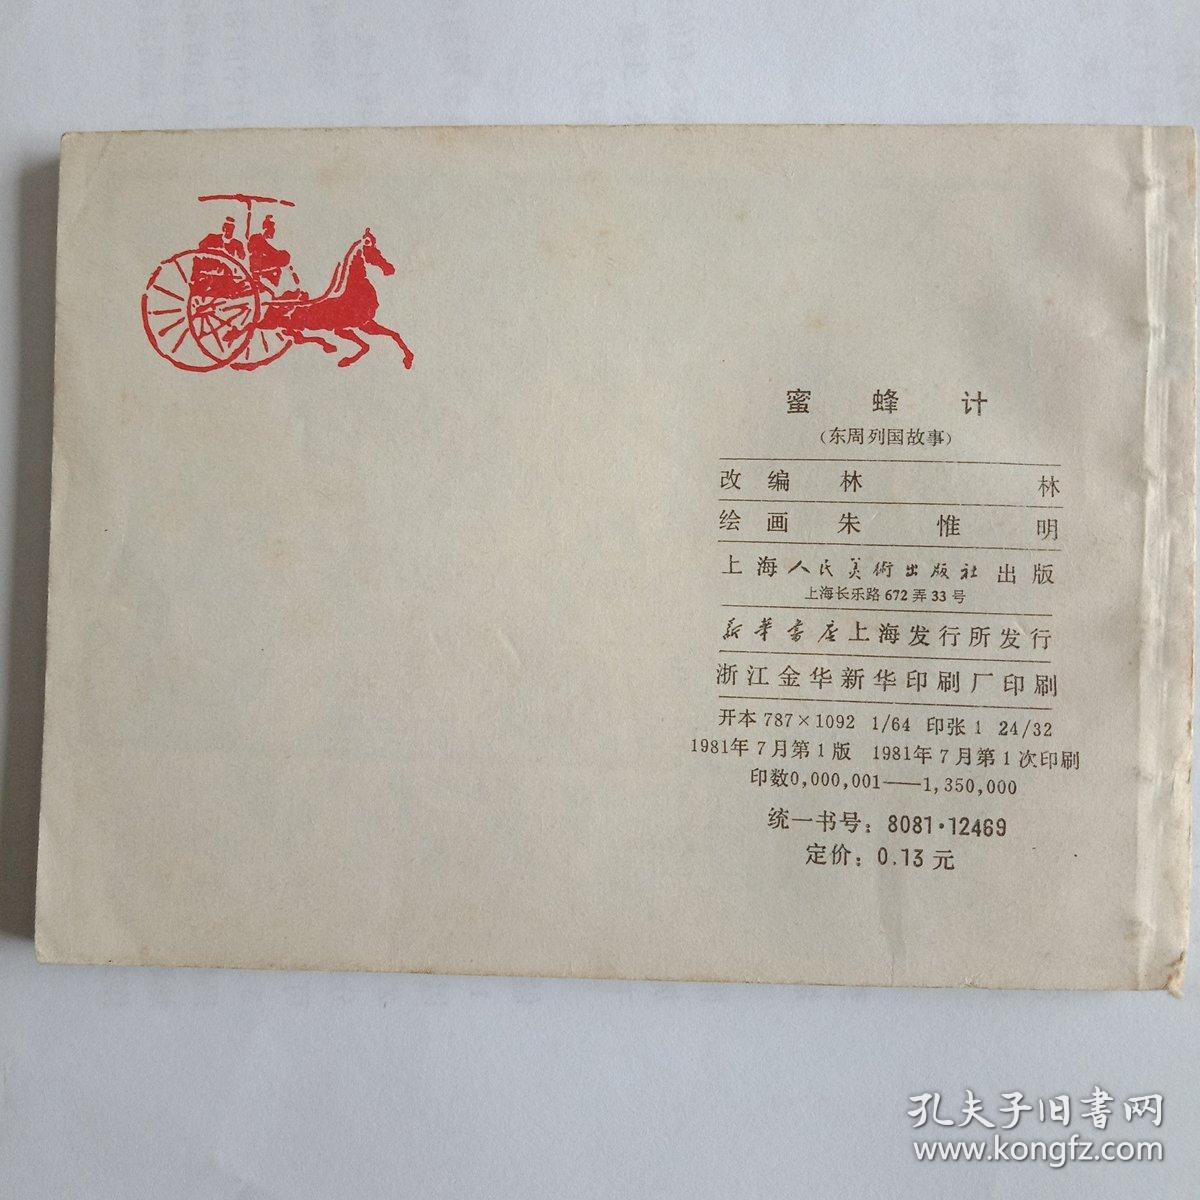 蜜蜂计
（东周列国故事）
改编 林林
绘画 朱惟明
上海人民美術出版社出版
上海长乐路672弄33号
新華書店上海发行所发行
浙江金华新华印刷厂印刷
开本 787×1092 1/64 印张 1 24/32
1981年7月第1版 1981年7月第1次印刷
印数0,000,001——1,350,000
统一书号：8081·12469
定价：0.13元
孔夫子旧書网
www.kongfz.com